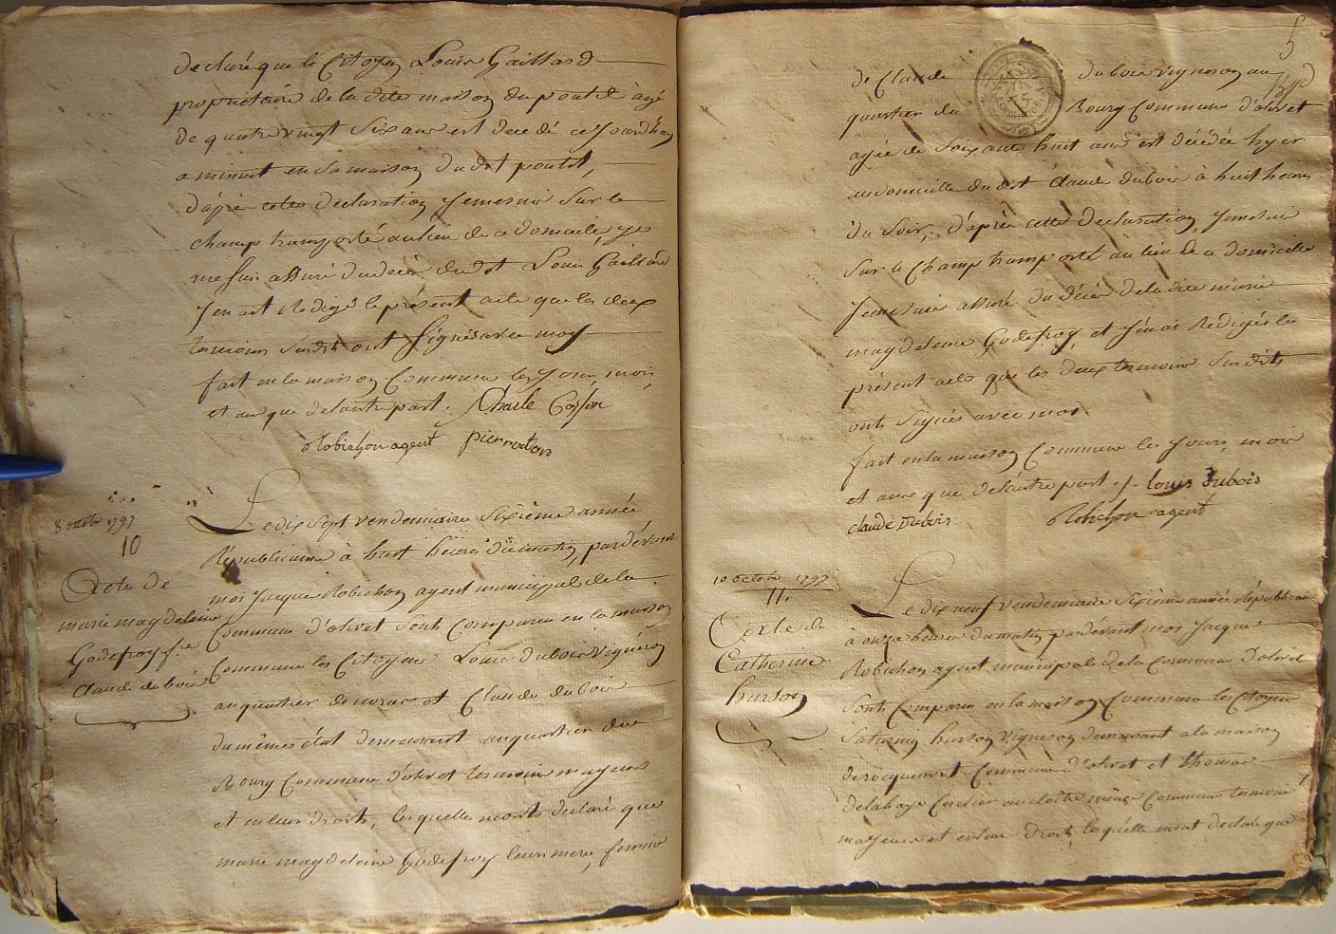 declaré que le Citoyen Louis Gaillard
propriétaire de la dite maison du poutil agé
de quatre vingt six ans est decedé ce jourd'huy
a minuit en sa maison dudit poutil,
d'aprés cette declaration je me suis sur le
champ transporté au lieu de ce domicile, je
me suis assuré du decés dudit Louis Gaillard
j'en ait redigé le présent acte que les deux
temoins susdits ont signés avec moy
fait en la maison Commune les jour, mois
et an que de l'autre part. Charle
Robichon agent pierre
8 octobre 1797
10
Acte de
marie magdeleine
Godefroy fe
Claude dubois
Le dix sept vendemiaire Sixième année
Républicaine à huit heures du matin, pardevant
moi Jacque Robichon agent municipal de la
Commune d'olivet sont comparus en la maison
Commune les Citoyens Louis dubois Vigneron
au quartier de et Claude dubois
du même état demeurant au quartier du
Bourg Commune d'olivet temoins majeurs
et en leurs droits, lesquelles m'ont declaré que
marie magdeleine Godefroy leur mere, femme
5
de Claude dubois vigneron au
quartier du Bourg Commune d'olivet
agée de soixante huit ans est décédée hyer
au domicille dudit Claude dubois à huit heures
du soir, d'aprés cette declaration, je me suis
sur le Champ transporté au lieu de ce domicille
je me suis assuré du décés de la dite marie
magdeleine Godefroy, et j'en ai redigé le
présent acte que les deux temoins susdits
ont signés avec moi.
fait en la maison Commune les jour, mois
et an que de l'autre part. louis dubois
claude Dubois Robichon agent
10 octobre 1797
11.
Acte de
Catherine
hurson
Le dix neuf vendemiaire Sixième année républicaine
à onze heures du matin pardevant moi Jacque
Robichon agent municipal de la Commune d'olivet
sont Comparus en la maison Commune les Citoyens
Saturnin hurson Vigneron demeurant a la maison
de Commune d'olivet et thomas
delahaye même Commune temoins
majeurs et en leur droits, lesquelles m'ont declaré que